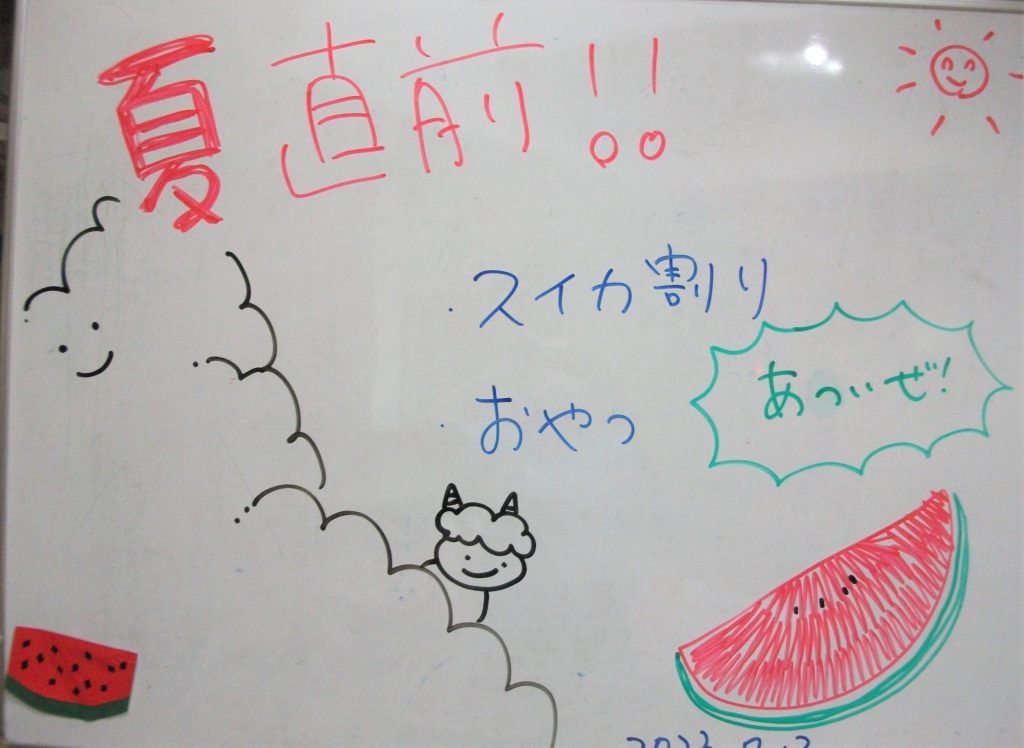 夏直前!!
・スイカ割り
あついぜ!
・おやつ